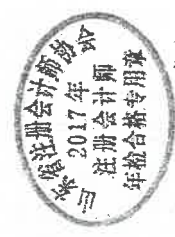 江苏省注册会计师协会
2017年
注册会计师
年检合格专用章